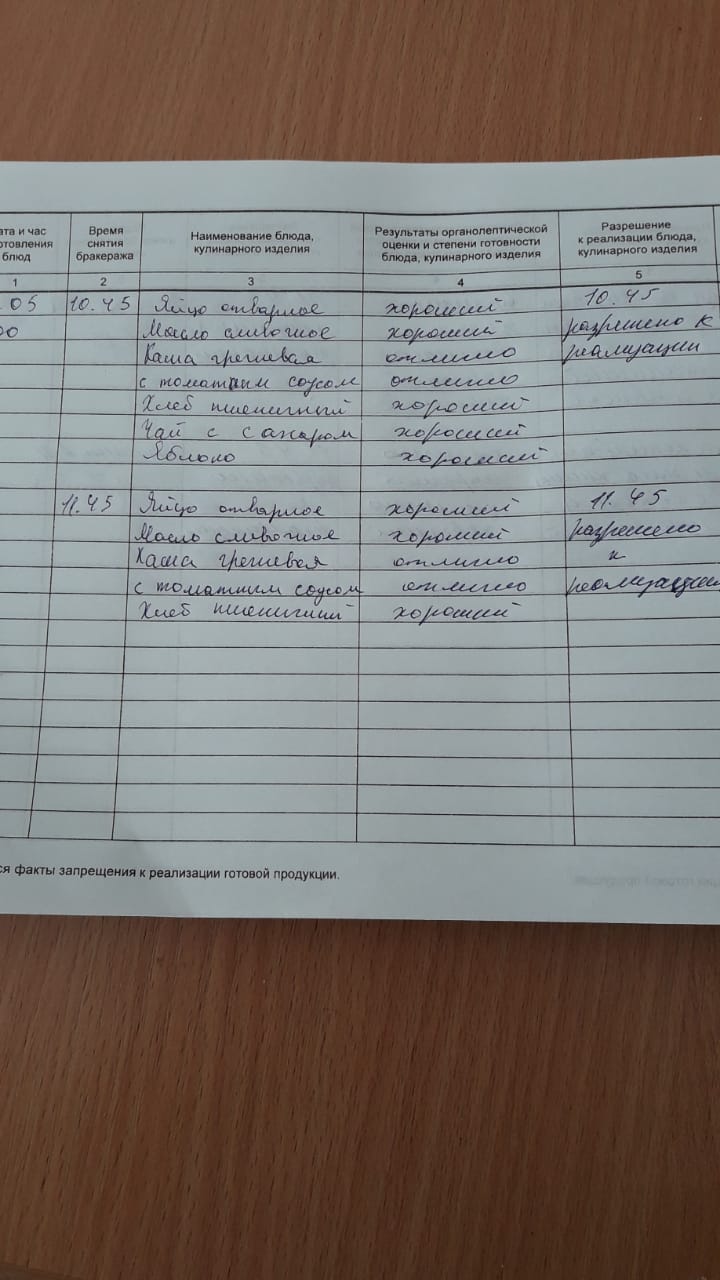 ата и час
отовления
блюд
Время
снятия
бракеража
Наименование блюда,
кулинарного изделия
Результаты органолептической
оценки и степени готовности
блюда, кулинарного изделия
Разрешение
к реализации блюда,
кулинарного изделия
1 2 3 4 5
.05 10.45 Яйцо отварное хороший 10.45
00 Масло сливочное хороший разрешено к
Каша гречневая отлично реализации
с томатным соусом отлично
Хлеб пшеничный хороший
Чай с сахаром хороший
Яблоко хороший
11.45 Яйцо отварное хороший 11.45
Масло сливочное хороший разрешено
Каша гречневая отлично к
с томатным соусом отлично реализации
Хлеб пшеничный хороший
ся факты запрещения к реализации готовой продукции.